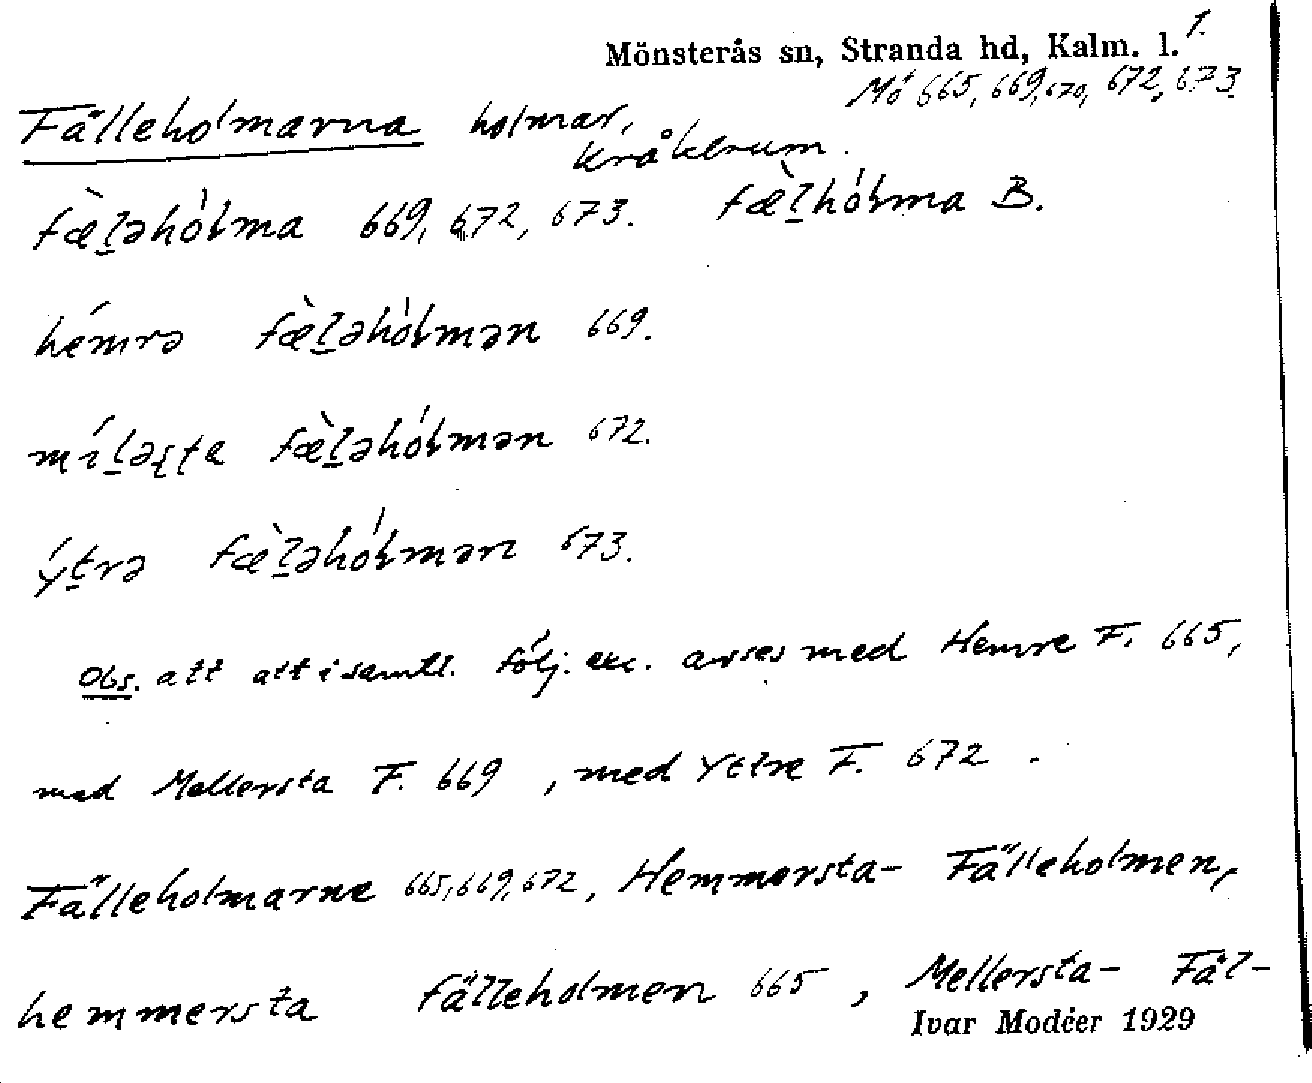 Mönsterås sn, Stranda hd, Kalm. l. 1.
Mö 665, 669, 670, 672, 673.
Fälleholmarna holmar,
Kråkerum.
fæ̀l̠əhólma 669, 672, 673. fæ̀l̠hólma B.
hémrə fæ̀l̠əhólmən 669.
míl̠əʂʈa fæ̀l̠əhólmən 672.
ýt̠rə fæ̀l̠əhólmən 673.
Obs. att att i samtl. följ. exc. avses med Hemre F. 665,
med Mellersta F. 669, med Yttre F. 672.
Fälleholmarne 665, 669, 672, Hemmersta- Fälleholmen,
hemmersta fälleholmen 665, Mellersta- Fäl-
Ivar Modéer 1929